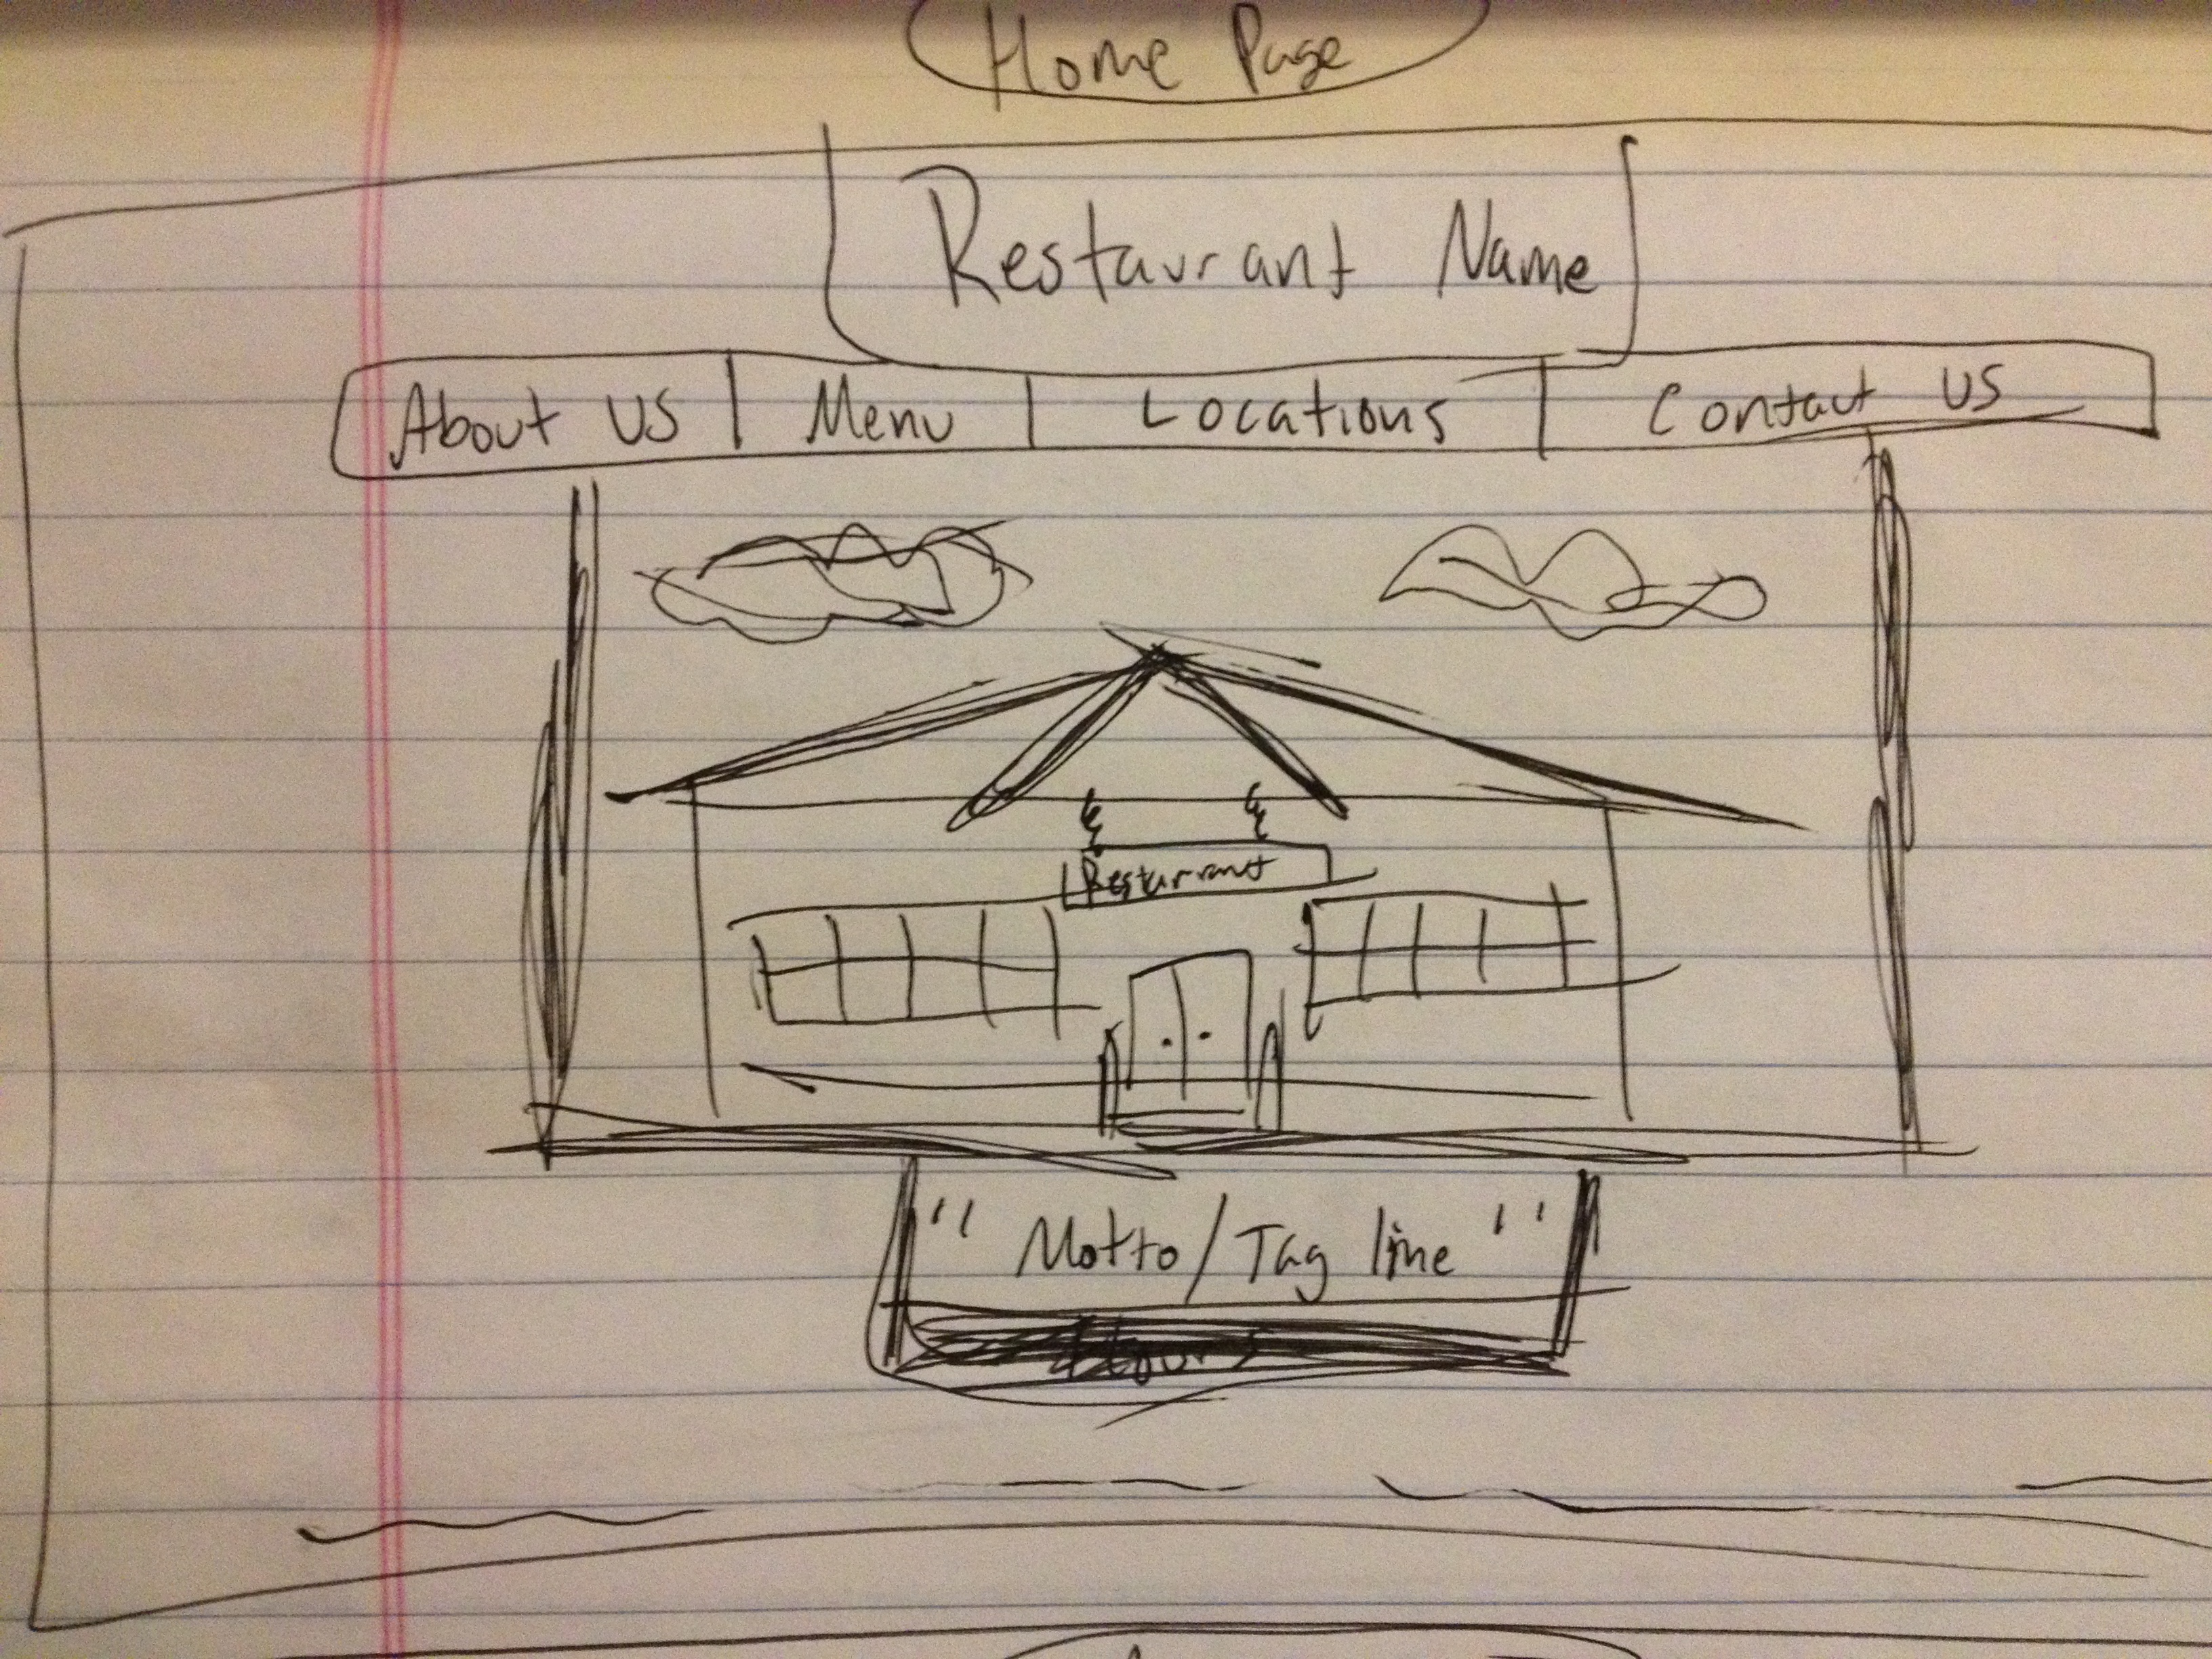 Home Page
Restaurant Name
About us | Menu | Locations | Contact us
Resturrant
" Motto/Tag line "